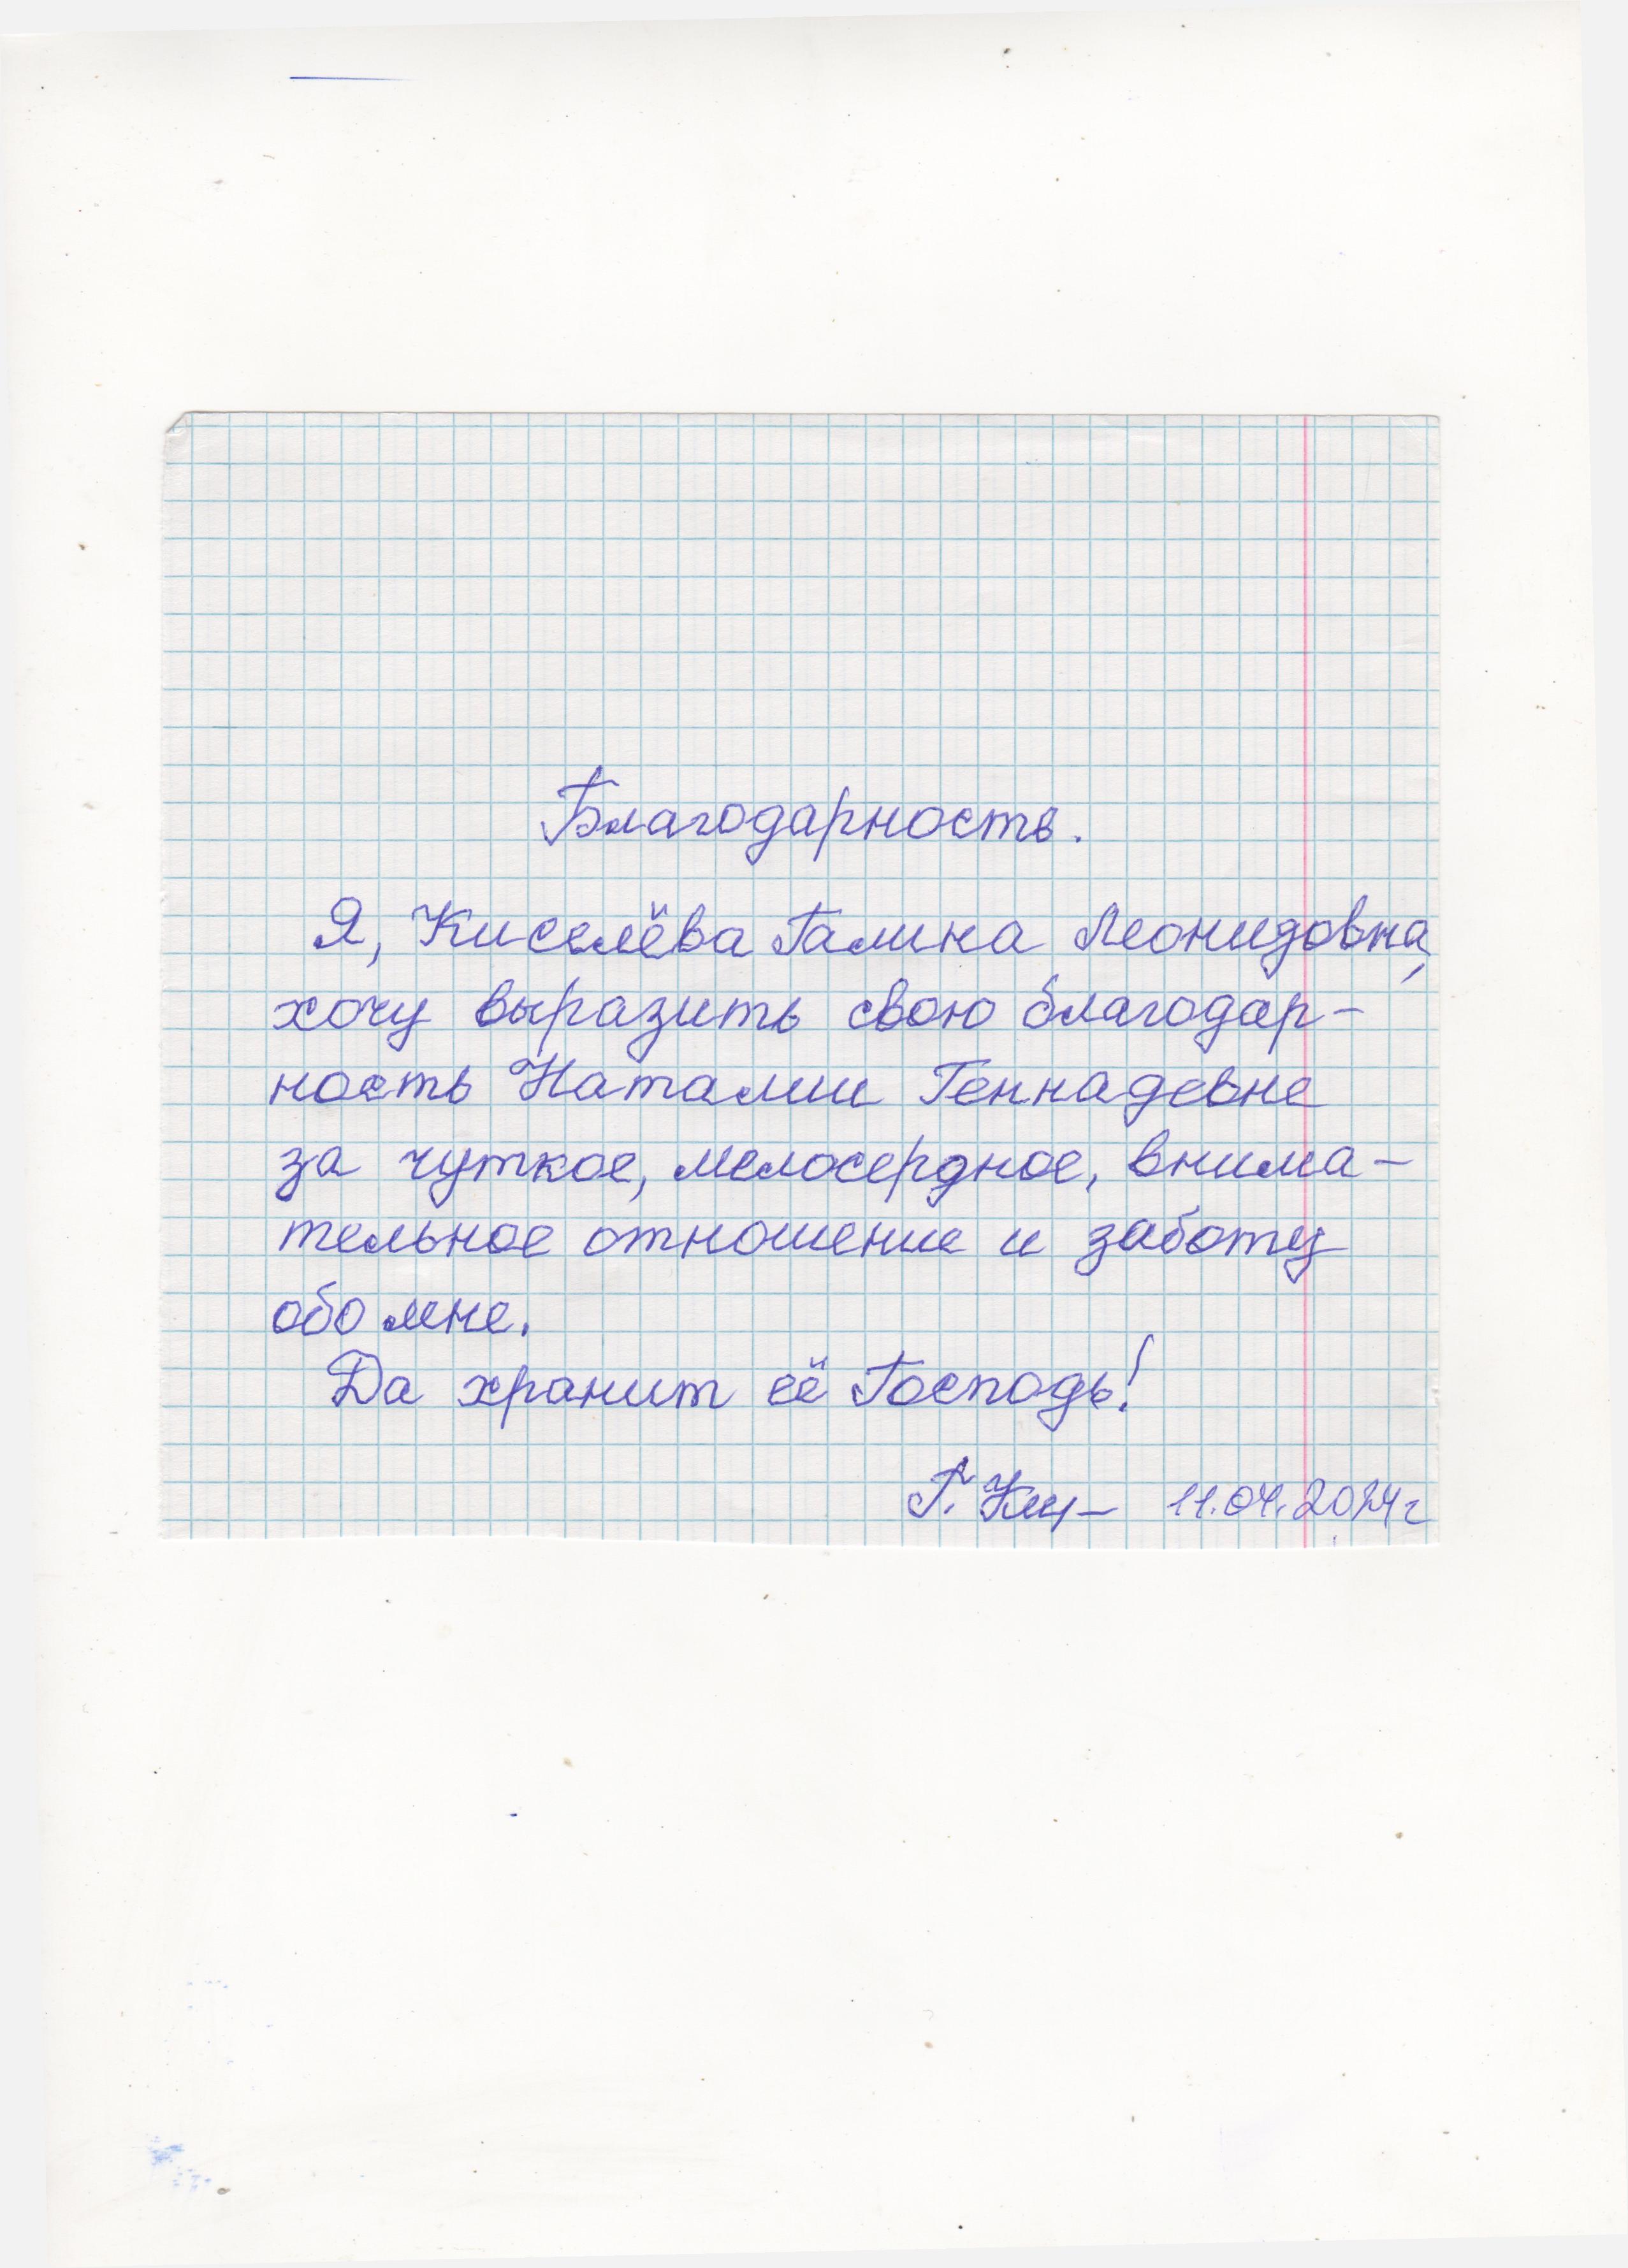 Благодарность.
Я, Киселёва Галина Леонидовна,
хочу выразить свою благодар-
ность Наталии Геннадевне
за чуткое, мелосердное, внима-
тельное отношение и заботу
обо мне.
Да хранит её Господь!
Г. 11.04.2024г